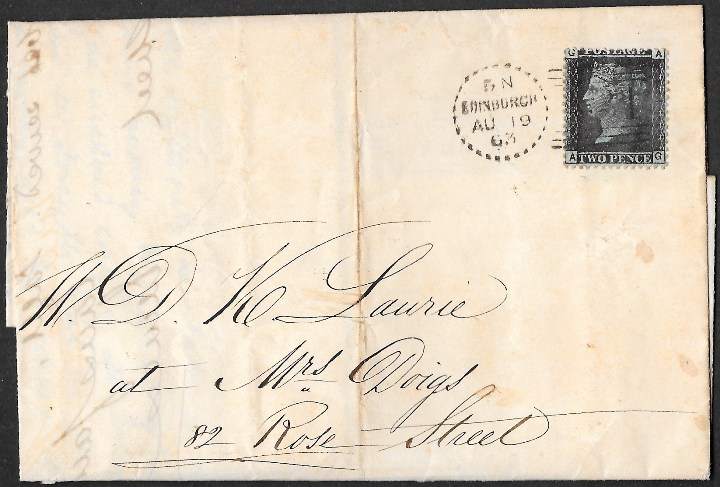 G POSTAGE A
A TWO PENCE G
5 N
EDINBURGH
AU 19
63
W. D. K. Laurie
at Mrs Doigs
82 Rose Street